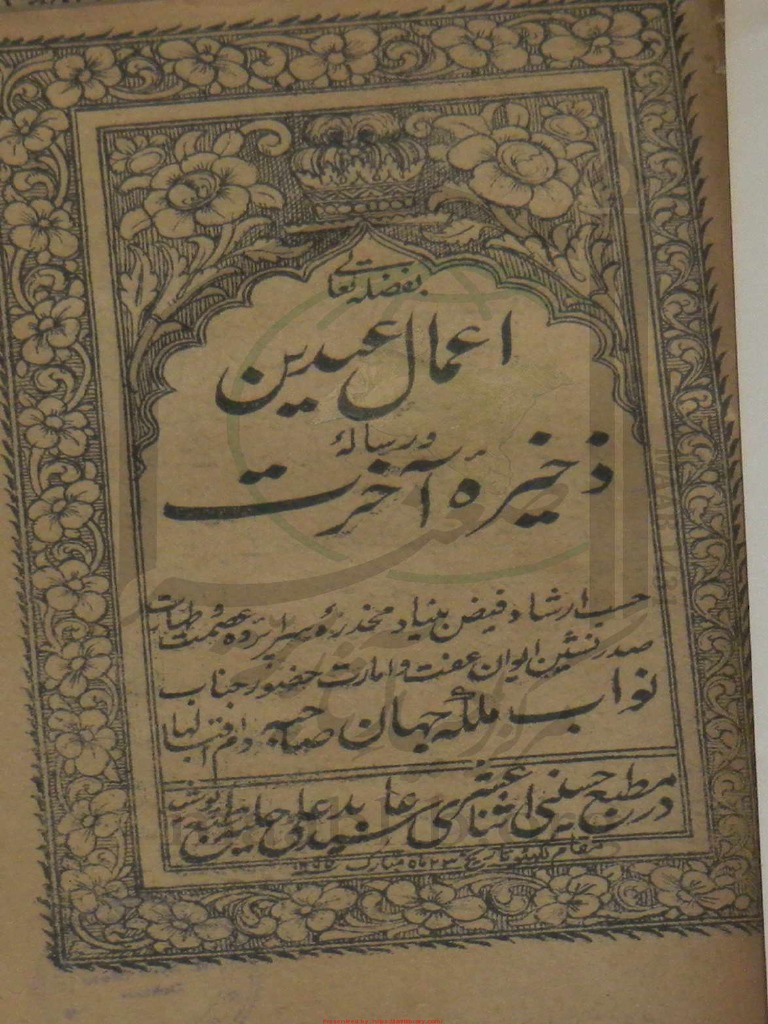 بفضلہ تعالی
اعمال عیدین
و رسالۂ
ذخیرۂ آخرت
حسب ارشاد فیض بنیاد مخدرۂ سراپردہ عصمت و طہارت
صدر نشین ایوان عفت و امارت حضور جناب
نواب ملکہ جہان صاحبہ دام اقبالہا
در مطبع حسینی اثنا عشری سید عابد علی طبع
بمقام لکھنؤ بتاریخ ۲۳ ماہ مبارک